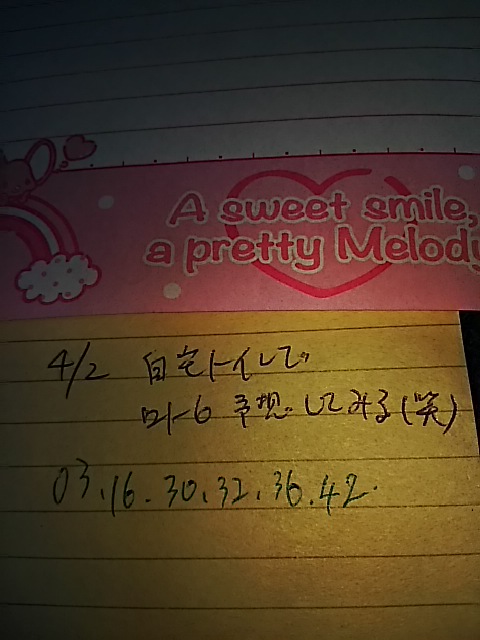 A sweet smile,
a pretty Melody
4/2 自宅トイレで
ロト6 予想してみる(笑)
03.16.30.32.36.42.